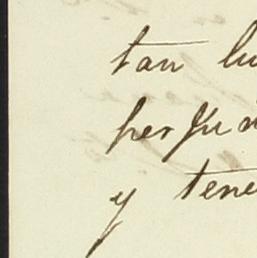 tan lu
perju
y tene